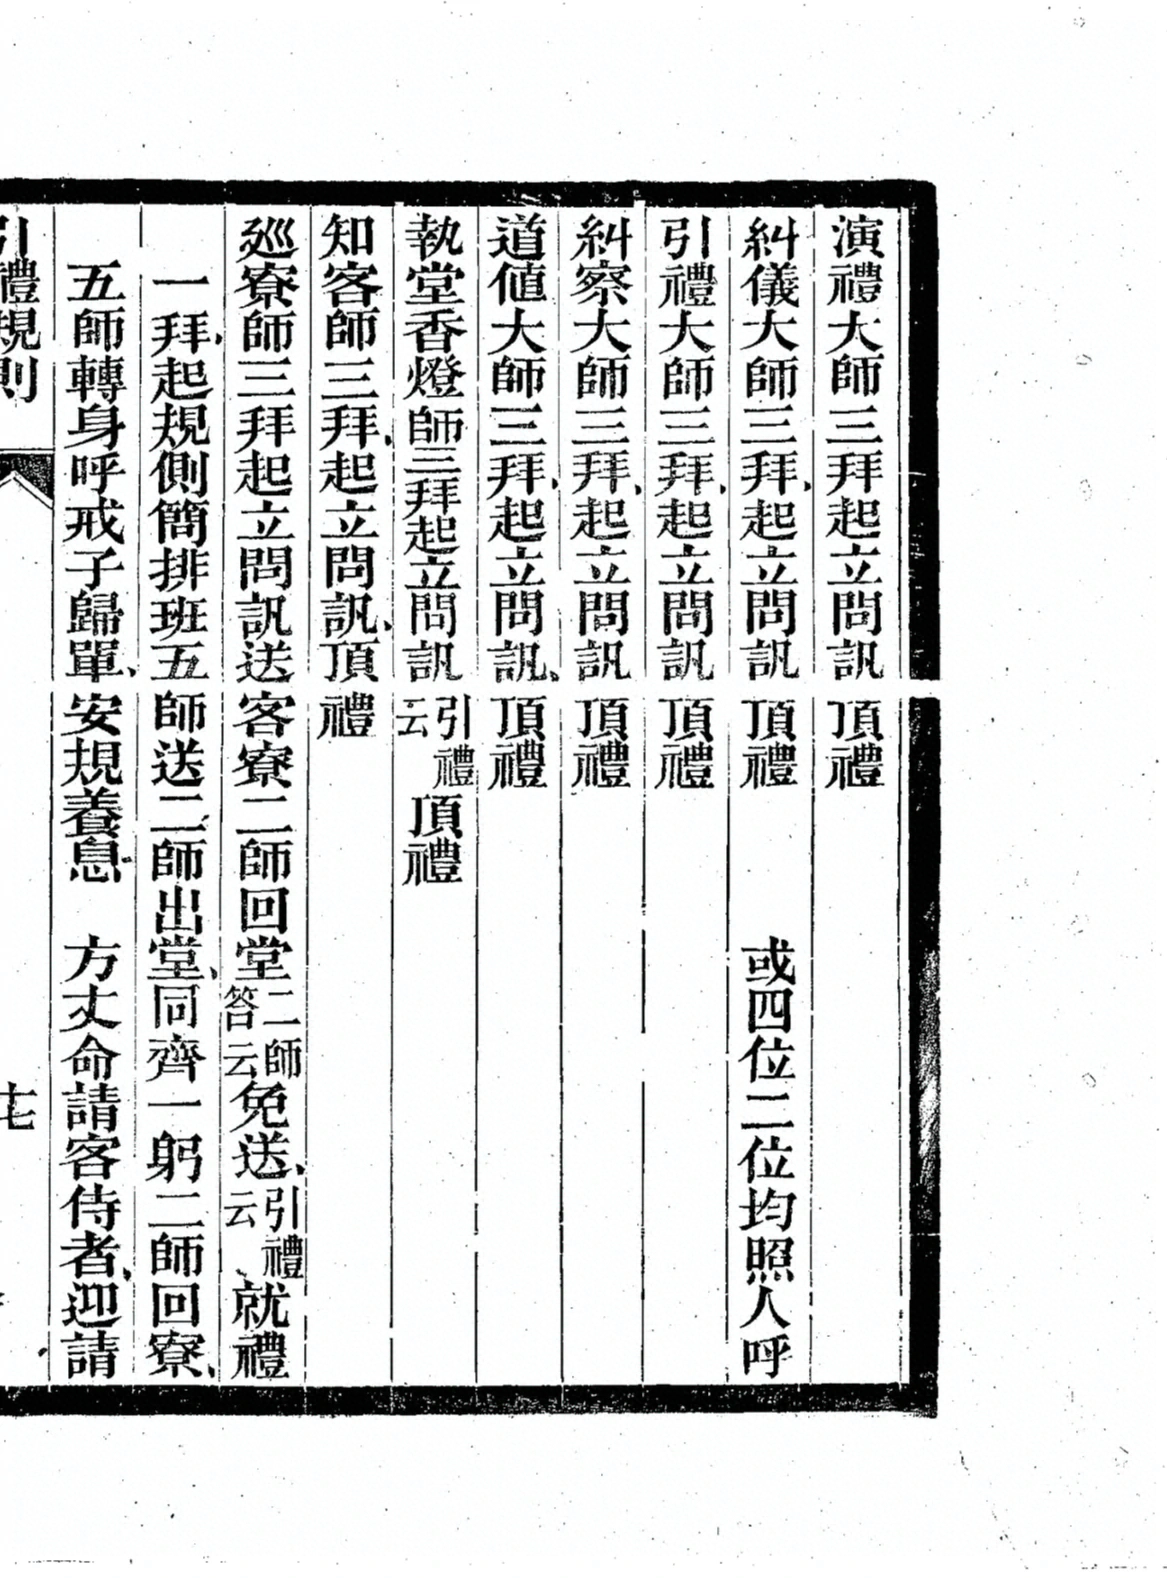 演禮大師三拜起立問訊頂禮
糾儀大師三拜、起立問訊頂禮　或四位二位均照人呼
引禮大師三拜、起立問訊頂禮
糾察大師三拜、起立問訊頂禮
道值大師三拜、起立問訊、頂禮
執堂香燈師三拜起立問訊引禮云頂禮
知客師三拜、起立問訊、頂禮
巡寮師三拜起立問訊送客寮二師回堂二師答云免送、引禮云、就禮
一拜、起規側簡排班五師送二師出堂、同齊一躬二師回寮、
五師轉身呼戒子歸單、安規養息　方丈命請客侍者、迎請
引禮規則
十七